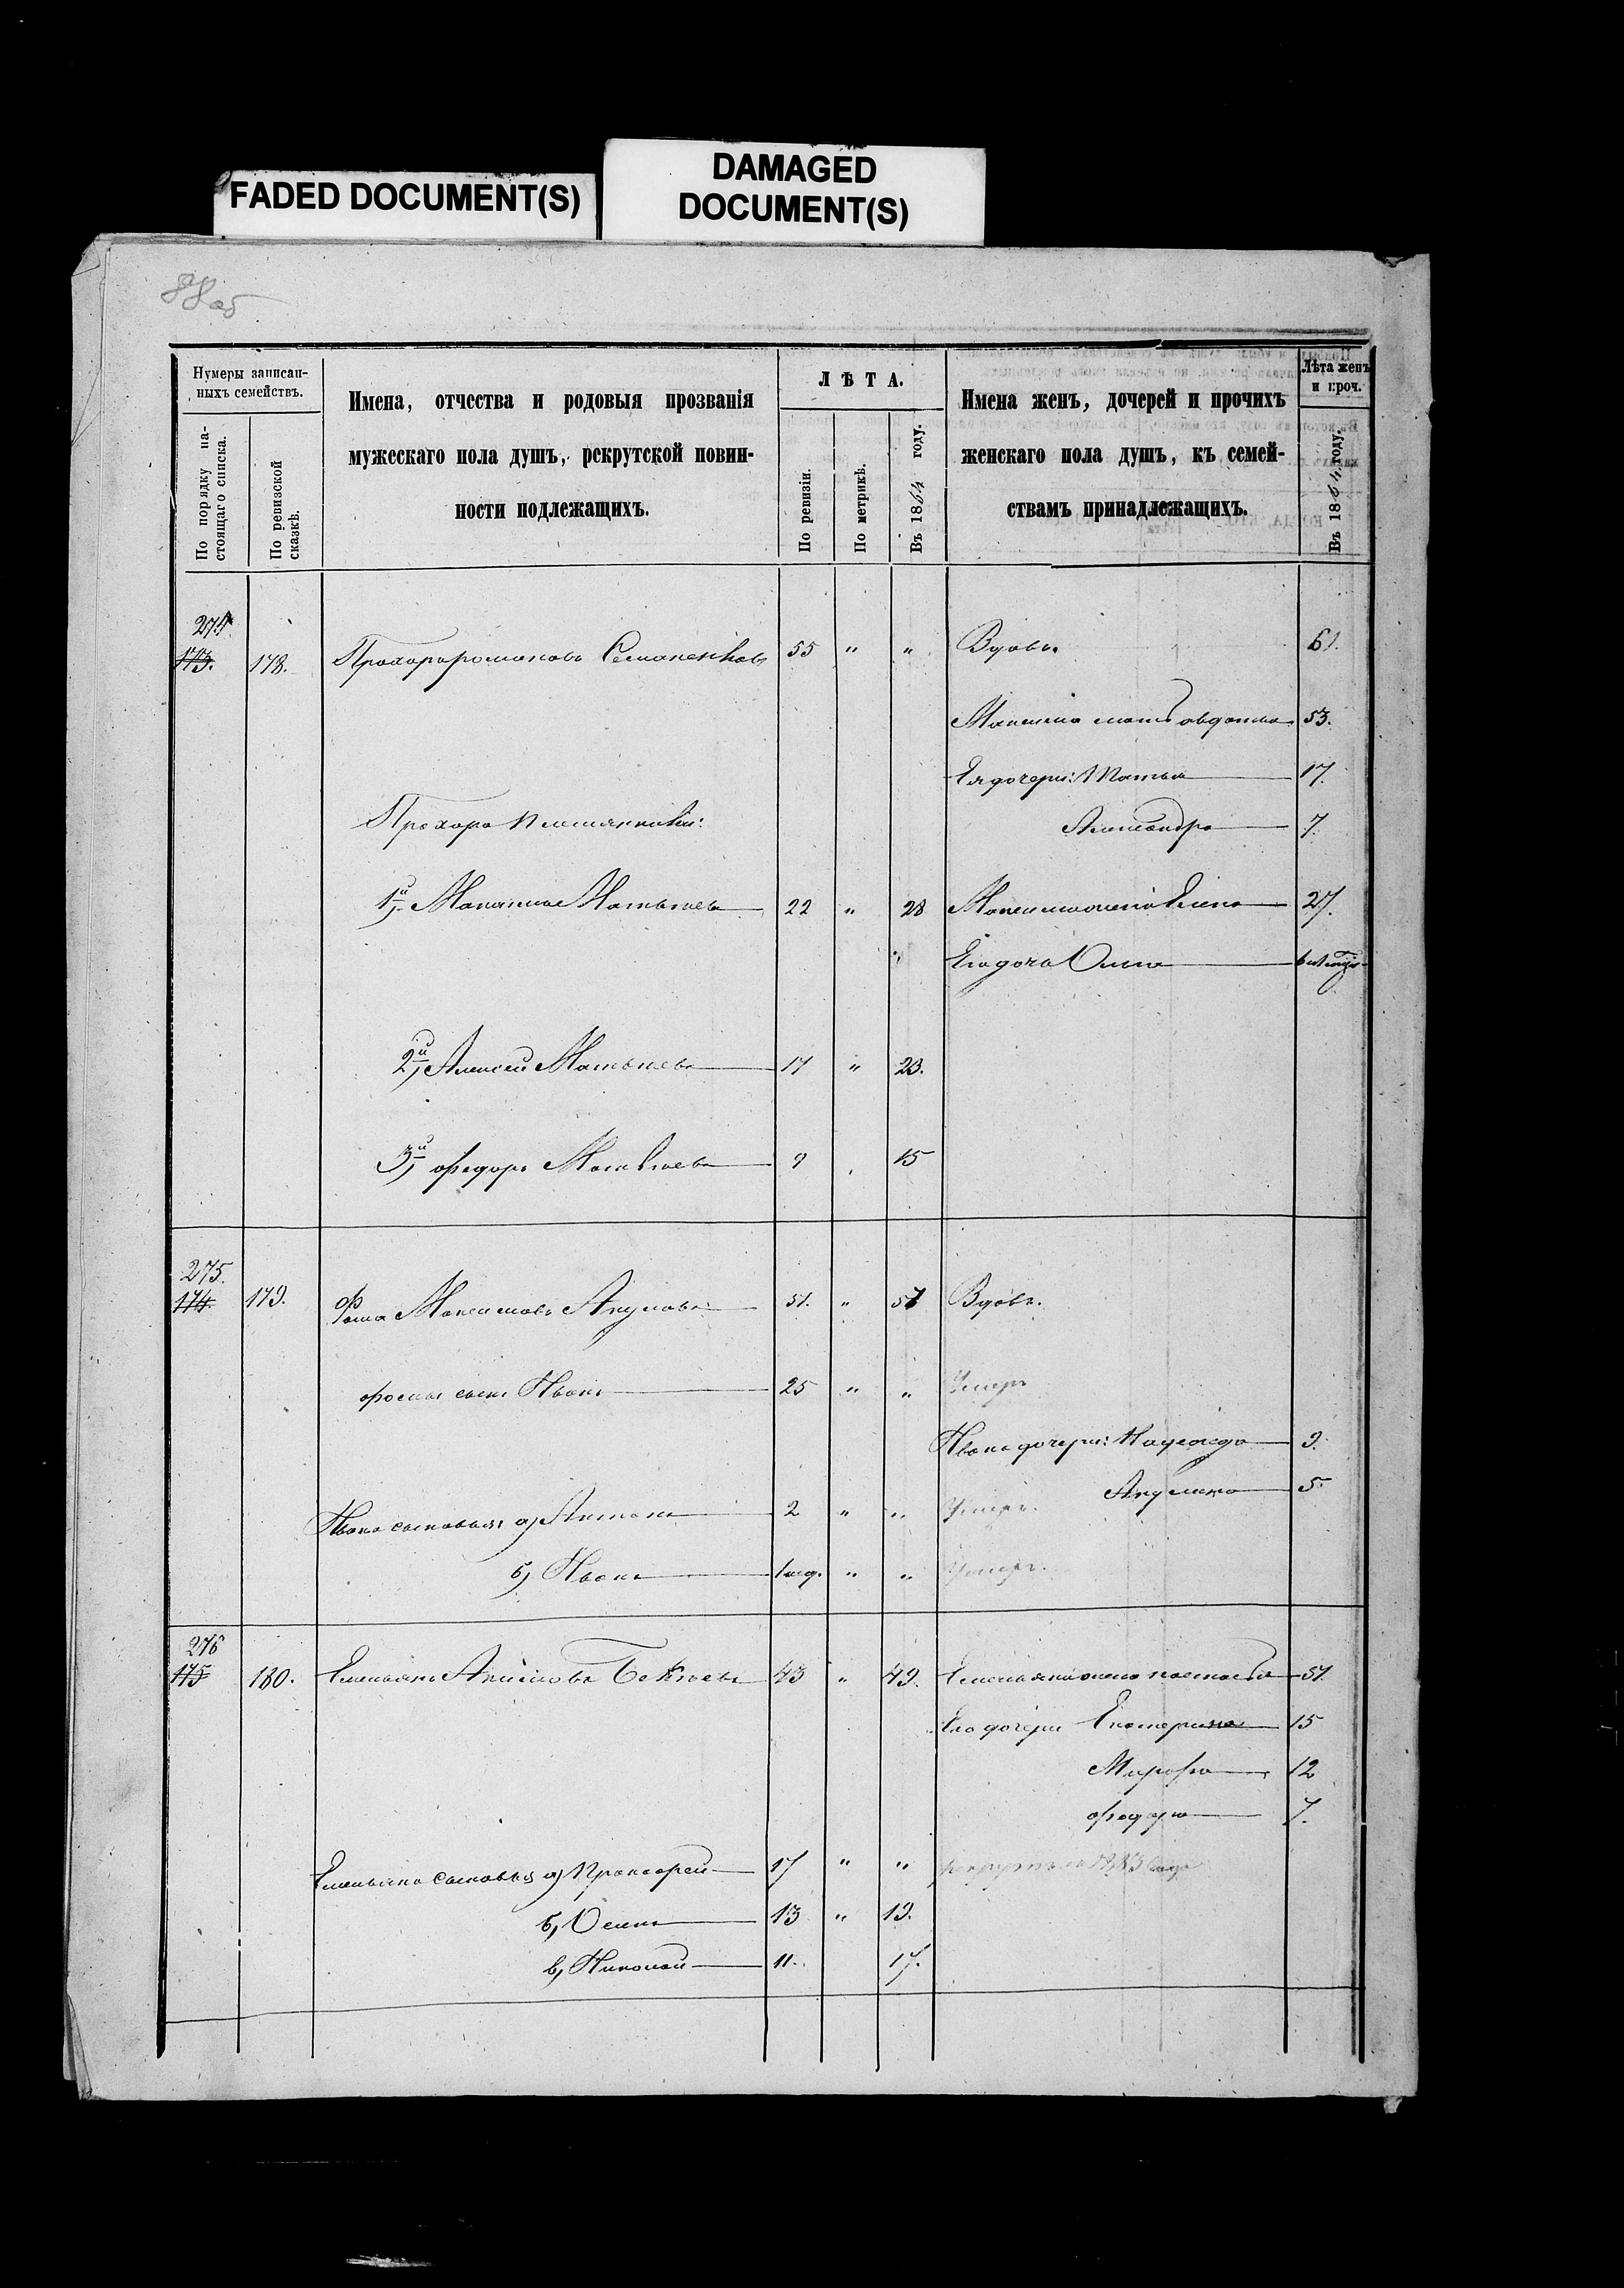 FADED DOCUMENT(S)
DAMAGED
DOCUMENT(S)
88 об
Нумеры записан-
ныхъ семействъ.
По порядку на-
стоящаго списка.
По ревизской
сказкѣ.
Имена, отчества и родовыя прозванія
мужескаго пола душъ, рекрутской повин-
ности подлежащихъ.
ЛѢТА.
По ревизіи.
По метрикѣ.
Въ 1864 году.
Имена женъ, дочерей и прочихъ
женскаго пола душъ, къ семей-
ствамъ принадлежащихъ.
Лѣта женъ
и проч.
Въ 1864 году.
274.
173. 178. Прохоръ романовъ 55 " " Вдовъ. 61.
Максима мать авдотья 53.
Ея дочери: 17.
Прохора племянники: Александра 7.
1й, Максимъ Матвѣевъ 22 " 28 Максима жена Елена 27.
Его дочь
2й, Алексей Матвѣевъ 17 " 23.
3й, федоръ Матвѣевъ 9 15
275.
174. 179. фома Максимовъ Акуловъ 51. " 57 Вдовъ.
фомы сынъ Иванъ 25 " " Умеръ
Ивана дочери: Надежда 9.
Акулина 5.
Ивана сыновья: а, Антонъ 2 " " Умеръ.
б, Иванъ 1 нед. " " Умеръ.
276
175 180. Емельянъ Акимовъ 43 " 49. Емельяна жена настасья 51.
Его дочери Екатерина 15
Марфа 12
федора 7.
Емельяна сыновья а, 17 " " рекрутъ 1863 года
б, Осипъ 13 " 19.
в, Николай 11. 17.